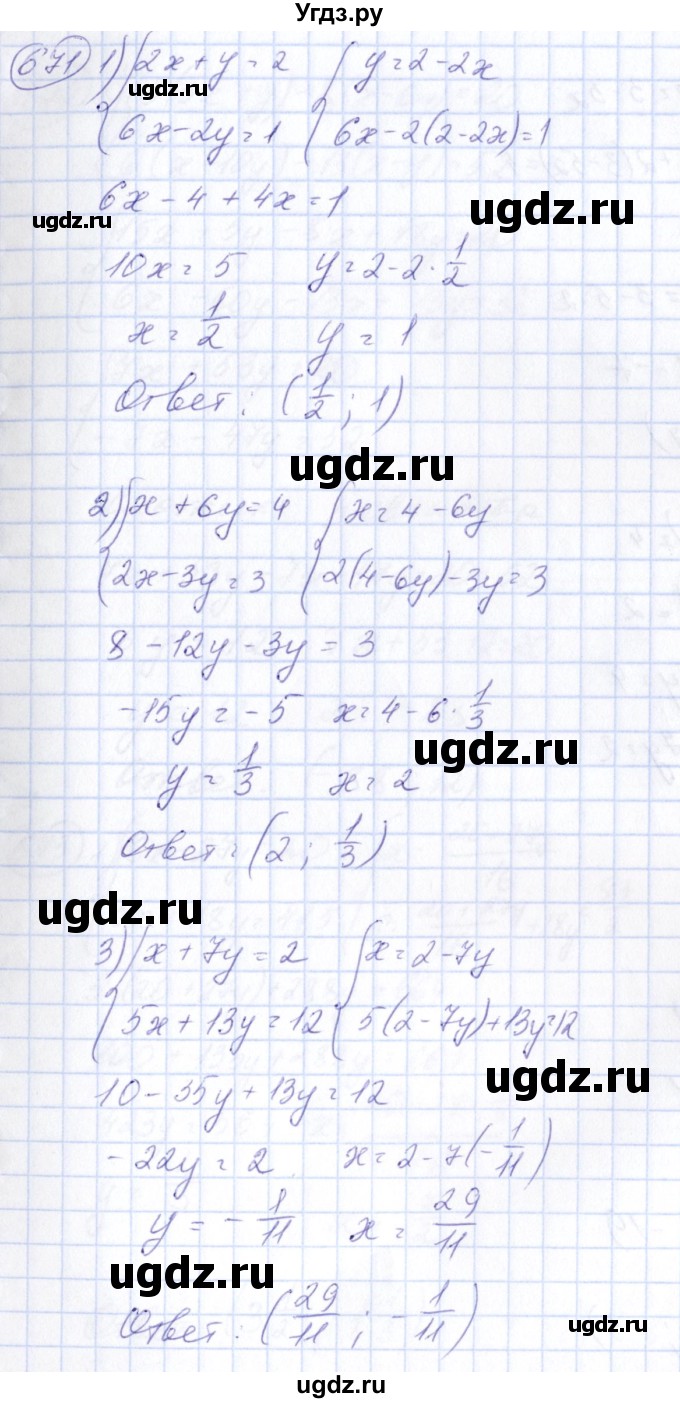 Угдз.ру
671 1) { 2x + y = 2 { y = 2 - 2x
ugdz.ru
6x - 2y = 1 6x - 2(2 - 2x) = 1
6x - 4 + 4x = 1
ugdz.ru
ugdz.ru
10x = 5 y = 2 - 2 · 1/2
x = 1/2 y = 1
Ответ: (1/2 ; 1)
ugdz.ru
2) { x + 6y = 4 { x = 4 - 6y
2x - 3y = 3 2(4 - 6y) - 3y = 3
8 - 12y - 3y = 3
-15y = -5 x = 4 - 6 · 1/3
ugdz.ru
y = 1/3 x = 2
Ответ: (2 ; 1/3)
ugdz.ru
3) { x + 7y = 2 { x = 2 - 7y
5x + 13y = 12 5(2 - 7y) + 13y = 12
ugdz.ru
10 - 35y + 13y = 12
-22y = 2 x = 2 - 7(-1/11)
y = -1/11 x = 29/11
ugdz.ru
Ответ: (29/11 ; -1/11)
ugdz.ru
ugdz.ru